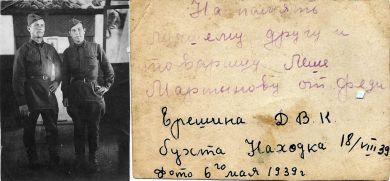 На память
лучшему другу и
товарищу Леше
Мартынову от Феди
Ерешина Д В К
бухта Находка 18/VIII 39
Фото 6го мая 1939г